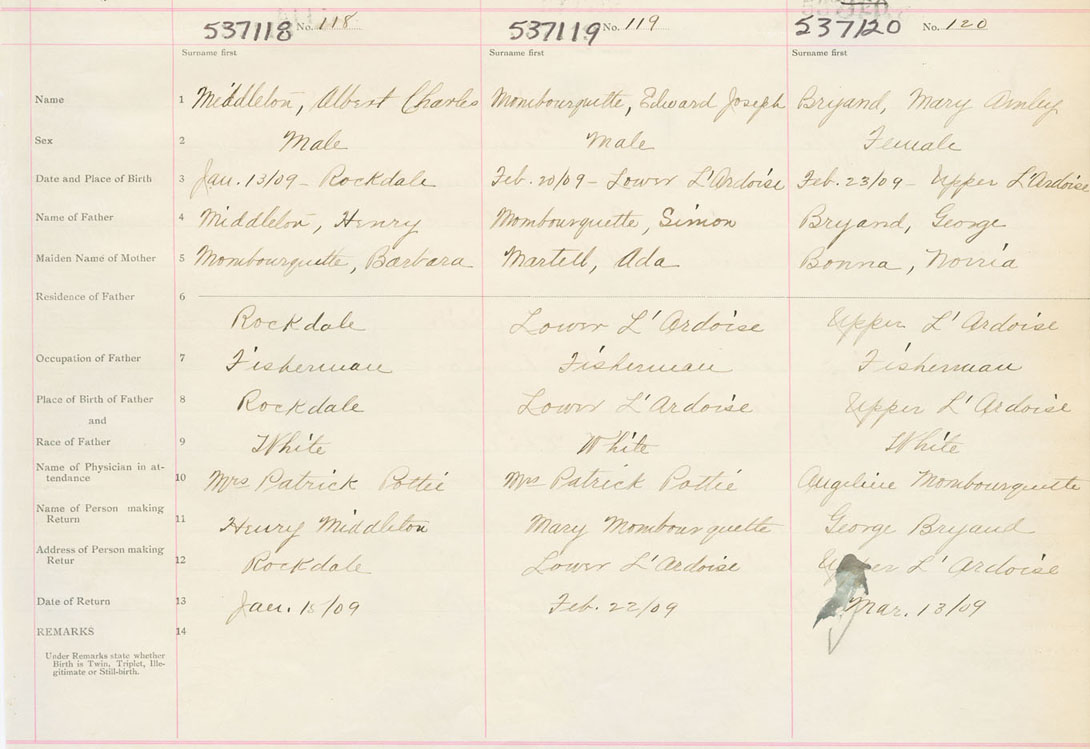 537118 No. 118 537119 No. 119 537120 No. 120
Surname first Surname first Surname first
Name 1 Middleton, Albert Charles Mombourquette, Edward Joseph Bryand, Mary Amley
Sex 2 Male Male Female
Date and Place of Birth 3 Jan. 13/09 - Rockdale Feb. 20/09 - Lower L'Ardoise Feb. 23/09 - Upper L'Ardoise
Name of Father 4 Middleton, Henry Mombourquette, Simon Bryand, George
Maiden Name of Mother 5 Mombourquette, Barbara Martell, Ada Bonna, Norria
Residence of Father 6
Rockdale Lower L'Ardoise Upper L'Ardoise
Occupation of Father 7 Fisherman Fisherman Fisherman
Place of Birth of Father 8 Rockdale Lower L'Ardoise Upper L'Ardoise
and
Race of Father 9 White White White
Name of Physician in at-
tendance 10 Mrs Patrick Pottie Mrs Patrick Pottie Angeline Mombourquette
Name of Person making
Return 11 Henry Middleton Mary Mombourquette George Bryand
Address of Person making
Retur 12 Rockdale Lower L'Ardoise Upper L'Ardoise
Date of Return 13 Jan. 15/09 Feb. 22/09 Mar. 13/09
REMARKS 14
Under Remarks state whether
Birth is Twin, Triplet, Ille-
gitimate or Still-birth.